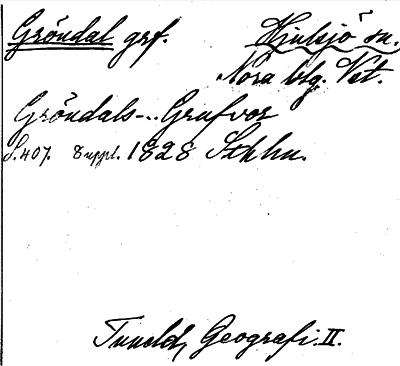 Gröndal grf. Hjulsjö sn.
Nora blg. Vst.
Gröndals-.. Grufvor
S. 407. Suppl. 1828 Sthlm.
Tuneld, Geografi. II.